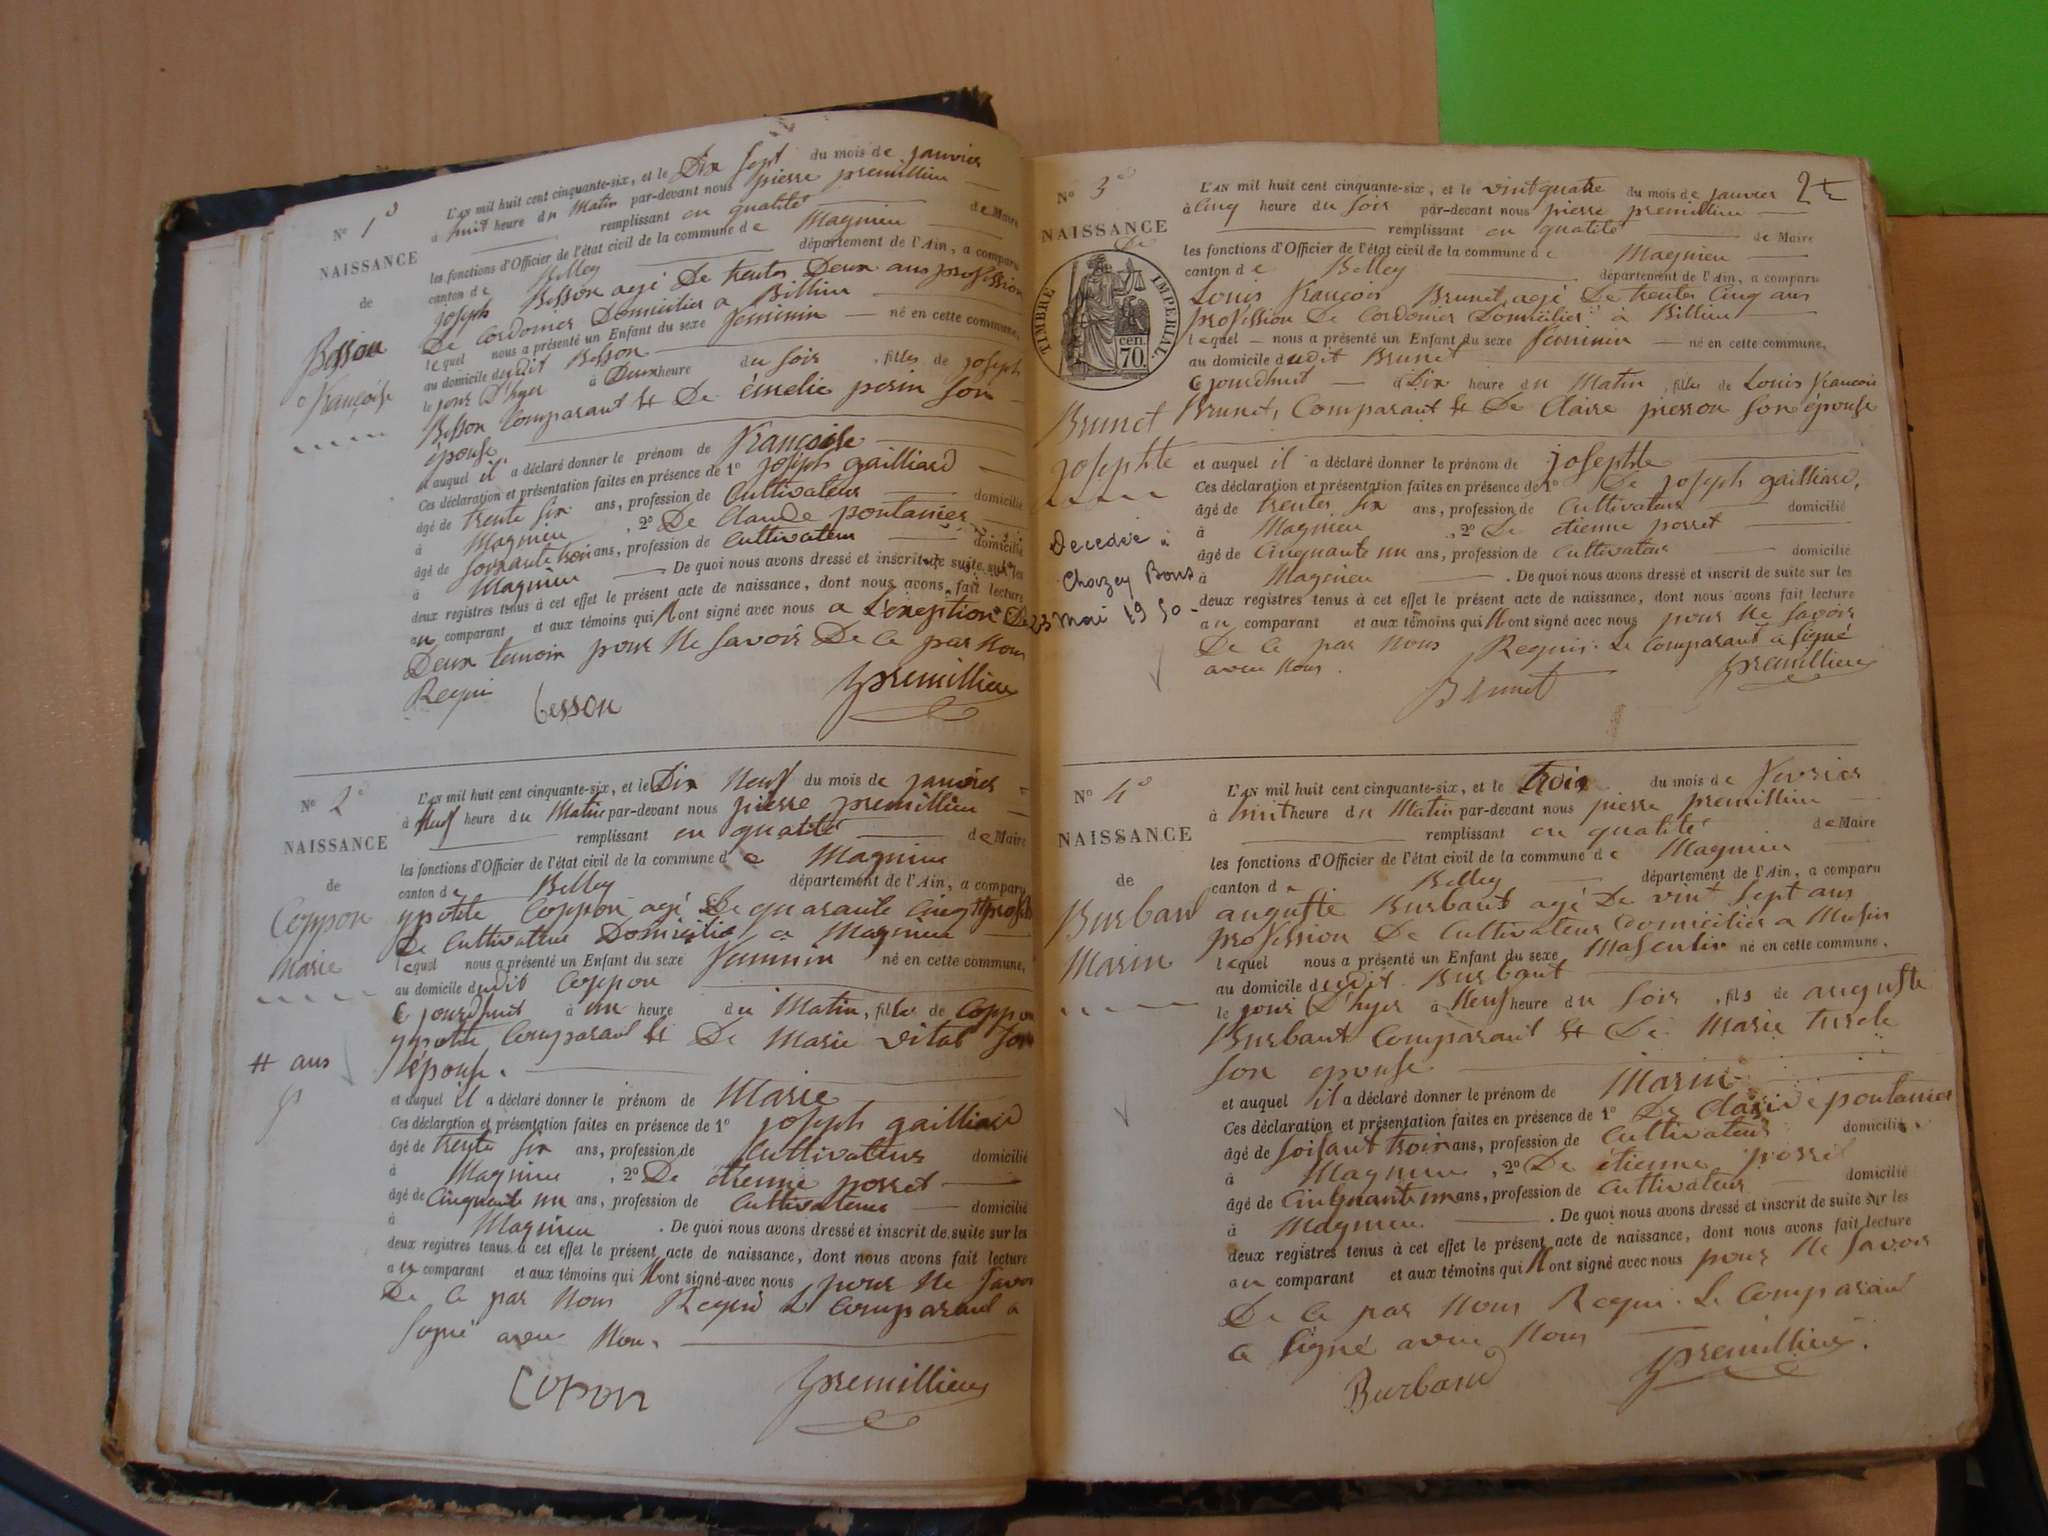 N° 1°
NAISSANCE
de
Besson
Françoise
L'AN mil huit cent cinquante-six, et le Dix Sept du mois de janvier
à huit heure du Matin par-devant nous pierre premillieu
remplissant en qualité de Maire
les fonctions d'Officier de l'état civil de la commune de Magnieu
canton de Belley département de l'Ain, a comparu
joseph Besson agé De trentes Deux ans profession
De Cordonier Domicilier a Billieu
lequel nous a présenté un Enfant du sexe feminin né en cette commune,
au domicile dudit Besson
le jour D'hyer à Deux heure du soir, filles de joseph
Besson Comparant & De émelie perin son
épouse
auquel il a déclaré donner le prénom de françoise
Ces déclaration et présentation faites en présence de 1° joseph gailliard
âgé de trente six ans, profession de Cultivateur domicilié
à Magnieu, 2° De Claude pontanier
âgé de soixante trois ans, profession de Cultivateur domicilié
à Magnieu De quoi nous avons dressé et inscrit de suite sur les
deux registres tenus à cet effet le présent acte de naissance, dont nous avons fait lecture
au comparant et aux témoins qui Nont signé avec nous a L'exeption De
Deux temoin pour Ne savoir De Ce par Nous
Requi
besson premillieu
N° 2°
NAISSANCE
de
Coppon
Marie
# ans
L'AN mil huit cent cinquante-six, et le Dix Neuf du mois de janvier
à Neuf heure du Matin par-devant nous pierre premillieu
remplissant en qualité de Maire
les fonctions d'Officier de l'état civil de la commune de Magnieu
canton de Belley département de l'Ain, a comparu
ypolite Coppon agé De quarante Cinq #
De Cultivateur Domicilié a Magnieu
lequel nous a présenté un Enfant du sexe feminin né en cette commune,
au domicile dudit Coppon
Ce jourdhuit à une heure du Matin, fille de Coppon
ypolite Comparant & De Marie vital son
épouse.
et auquel il a déclaré donner le prénom de Marie
Ces déclaration et présentation faites en présence de 1° joseph gailliard
âgé de trente six ans, profession de Cultivateur domicilié
à Magnieu, 2° De étienne porret
âgé de Cinquante un ans, profession de Cultivateur domicilié
à Magnieu. De quoi nous avons dressé et inscrit de suite sur les
deux registres tenus à cet effet le présent acte de naissance, dont nous avons fait lecture
au comparant et aux témoins qui Nont signé avec nous pour Ne savoir
De Ce par Nous Requi Le Comparant a
signé avec Nous
Copon premillieu
2
N° 3°
NAISSANCE
De
TIMBRE IMPERIAL.
70.
cen.
Brunet
josephte
Decedée à
Chazey Bons
23 Mai 1930
L'AN mil huit cent cinquante-six, et le vint quatre du mois de janvier
à Cinq heure du soir par-devant nous pierre premillieu
remplissant en qualité de Maire
les fonctions d'Officier de l'état civil de la commune de Magnieu
canton de Belley département de l'Ain, a comparu
Louis françois Brunet, agé De trentes Cinq ans
profession De Cordonier Domicilier à Billieu
lequel nous a présenté un Enfant du sexe feminin né en cette commune,
au domicile dudit Brunet
Ce jourdhuit à Dix heure du Matin, fille de Louis françois
Brunet, Comparant & De Claire pierson son épouse
et auquel il a déclaré donner le prénom de josephte
Ces déclaration et présentation faites en présence de 1° De joseph gailliard,
âgé de trentes six ans, profession de Cultivateur domicilié
à Magnieu, 2° De étienne porret
âgé de Cinquante un ans, profession de Cultivateur domicilié
à Magnieu. De quoi nous avons dressé et inscrit de suite sur les
deux registres tenus à cet effet le présent acte de naissance, dont nous avons fait lecture
au comparant et aux témoins qui Nont signé avec nous pour Ne savoir
De Ce par Nous Requis. Le Comparant a signé
avec Nous.
Brunet premillieu
N° 4°
NAISSANCE
de
Burbant
Marin
L'AN mil huit cent cinquante-six, et le trois du mois de fevrier
à huit heure du Matin par-devant nous pierre premillieu
remplissant en qualité de Maire
les fonctions d'Officier de l'état civil de la commune de Magnieu
canton de Belley département de l'Ain, a comparu
auguste Burbant agé De vint sept ans
profession De Cultivateur Domicilier a Musin
lequel nous a présenté un Enfant du sexe Masculin né en cette commune,
au domicile dudit Burbant
le jour D'hyer à Neuf heure du soir, fils de auguste
Burbant Comparant & De Marie turcle
son epouse
et auquel il a déclaré donner le prénom de Marin
Ces déclaration et présentation faites en présence de 1° De Claude pontanier
âgé de soisant trois ans, profession de Cultivateur domicilié
à Magnieu, 2° De étienne porret
âgé de Cinquante un ans, profession de Cultivateur domicilié
à Magnieu. De quoi nous avons dressé et inscrit de suite sur les
deux registres tenus à cet effet le présent acte de naissance, dont nous avons fait lecture
au comparant et aux témoins qui Nont signé avec nous pour Ne savoir
De Ce par Nous Requi. Le Comparant
a signé avec Nous
Burband premillieu